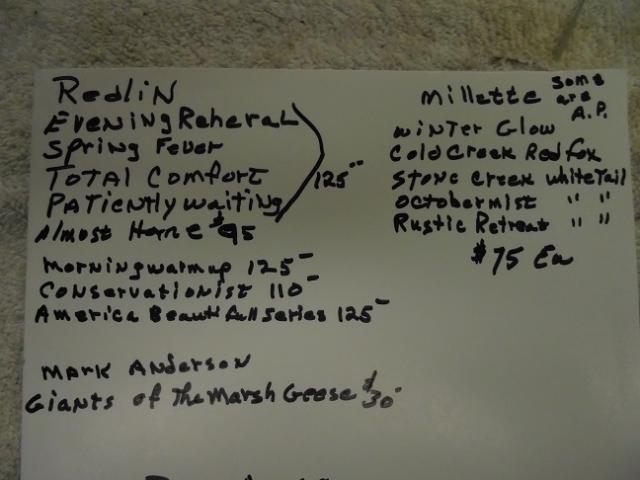 Redlin
Evening Reheral
Spring Fever
Total Comfort
Patiently waiting
125--
Almost Home $95
Morning warmup 125-
Conservationist 110-
America Beautifull series 125-
Mark Anderson
Giants of The Marsh Geese $30-
Millette some are A.P.
Winter Glow
Cold Creek Red fox
Stone Creek whiteTail
October mist " "
Rustic Retreat " "
$75 Ea